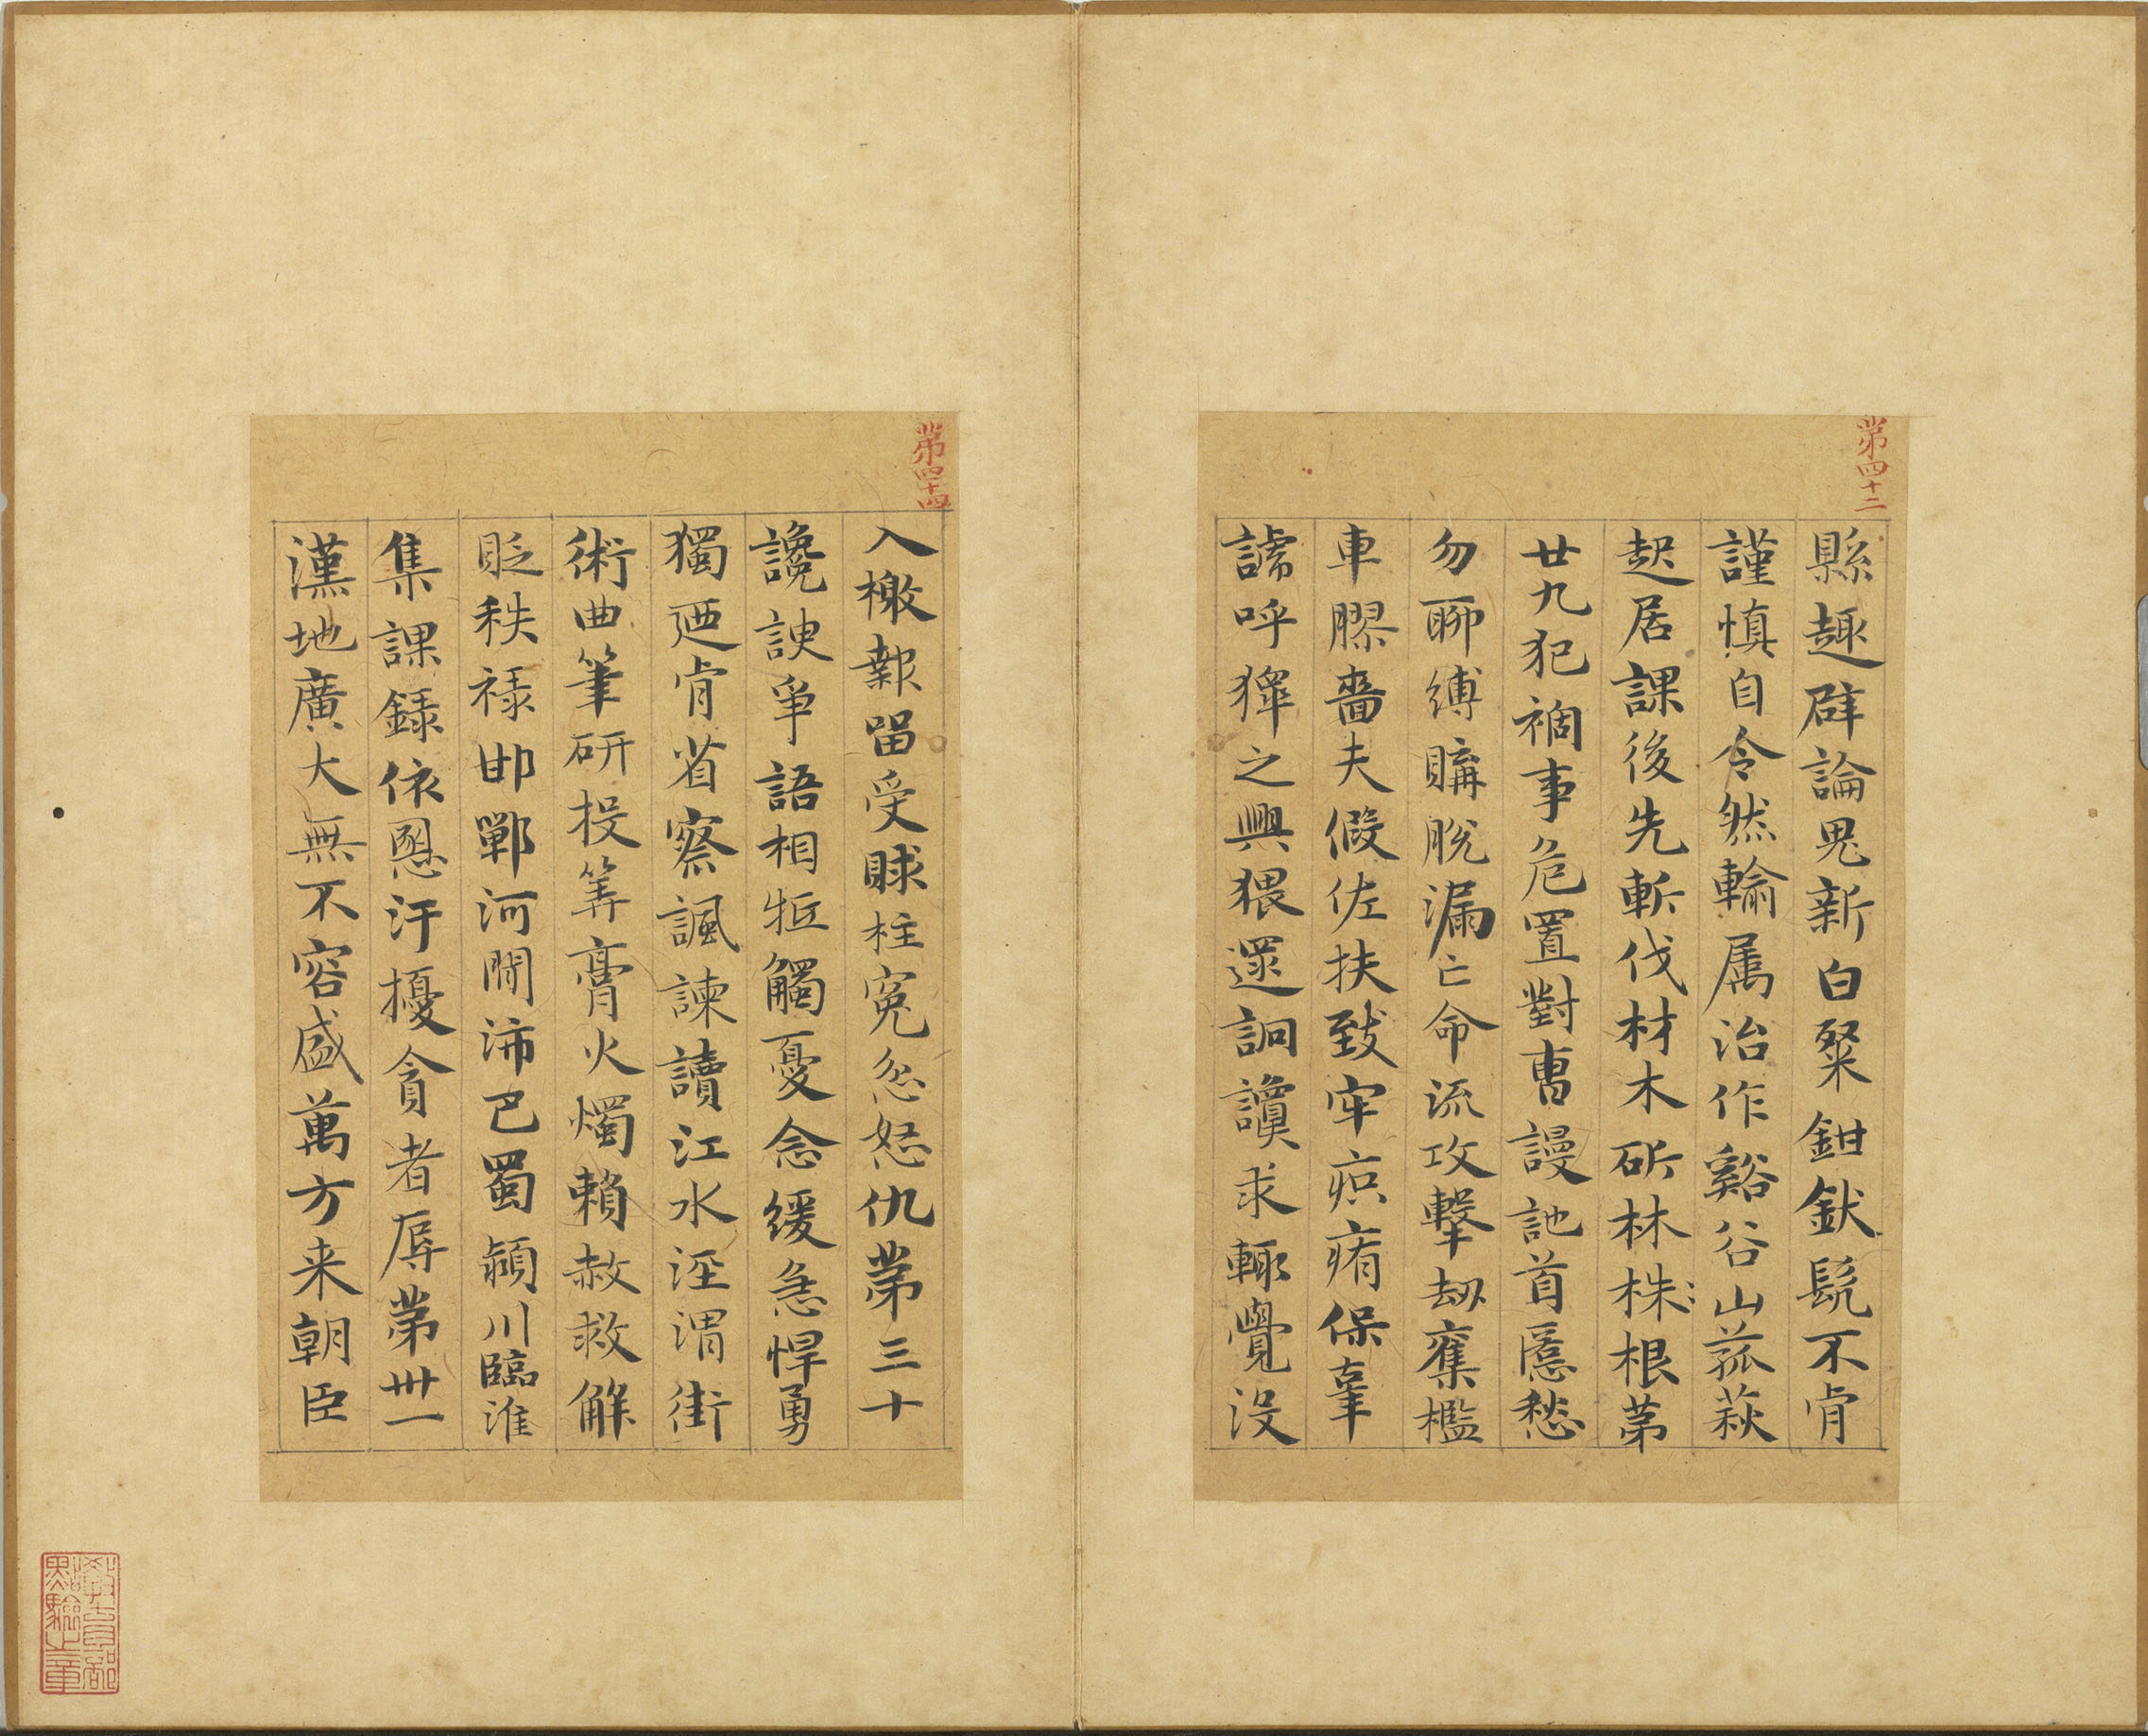 第四十二
縣趣辟論鬼新白粲鉗釱髡不肯
謹慎自令然輸属治作谿谷山菰萩
起居課後先斬伐材木斫林株根苐
廿九犯禍事危置對曹謾訑首匿愁
勿聊縛購脫漏亡命流攻擊劫奪檻
車膠嗇夫假佐扶致牢疻痏保辜
謕呼獋之興猥逯詗讂求輒覺没
第四十四
入檄報留受賕枉冤忿怒仇苐三十
讒諛爭語相牴觸憂念緩急悍勇
獨迺肯省察諷諫讀江水涇渭街
術曲筆研投筭膏火燭賴赦救解
貶秩禄邯鄲河間沛巴蜀潁川臨淮
集課録依恩汙擾貪者辱苐卅一
漢地廣大無不容盛萬方来朝臣
教育部點驗之章